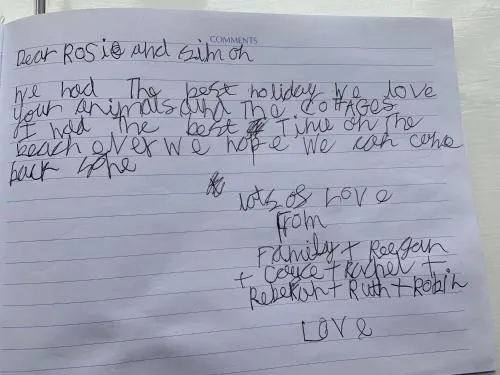 COMMENTS
Dear ROSie and simon
we had The best holiday we love
your animals and The COTTAGES
I had The best Time on The
beach ever we hope we can come
back
lots of LOVE
from
Family + Reegan
+ + Rachel +
Rebekah + Ruth + Robin
LOVE